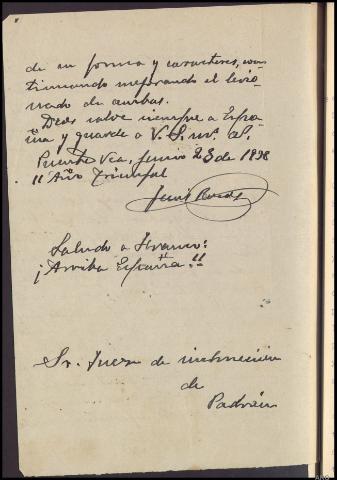 de su forma y caracteres, con
tinuando mejorando el lesio
nado de ambas.
Dios salve siempre a Espa
ña y guarde a V.S. ms. as.
Puente Vea, Junio 23 de 1938
II Año Triunfal
Saludo a Franco:
¡Arriba España!!
Sr. Juez de instrucción
de
Padrón